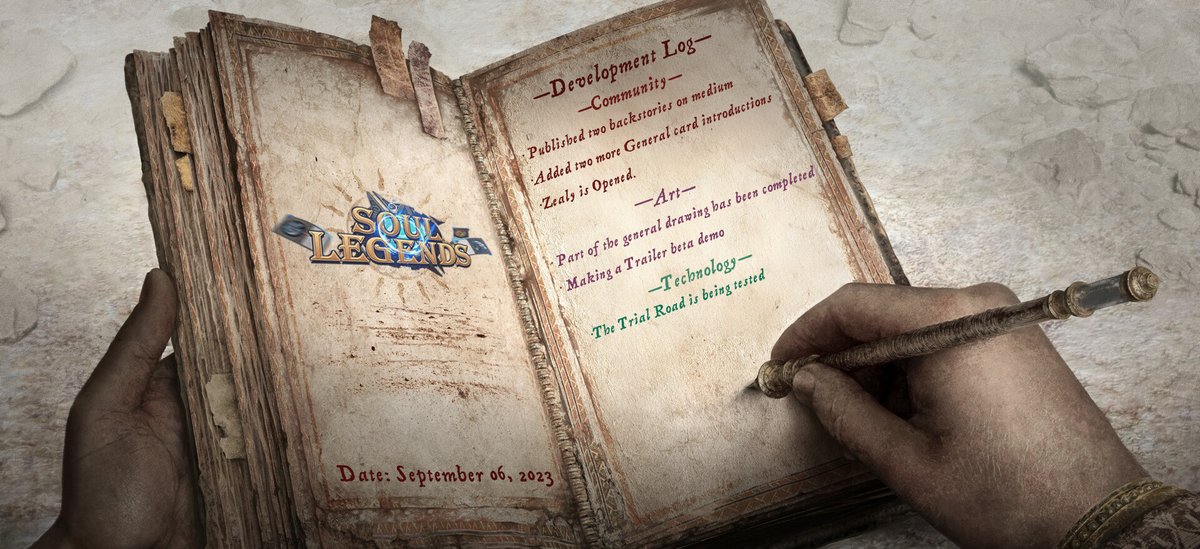 SOUL
LEGENDS
Date: September 06, 2023
—Development Log—
—Community—
·Published two backstories on medium
·Added two more General card introductions
·Zealy is Opened.
—Art—
·Part of the general drawing has been completed
·Making a Trailer beta demo
—Technology—
·The Trial Road is being tested